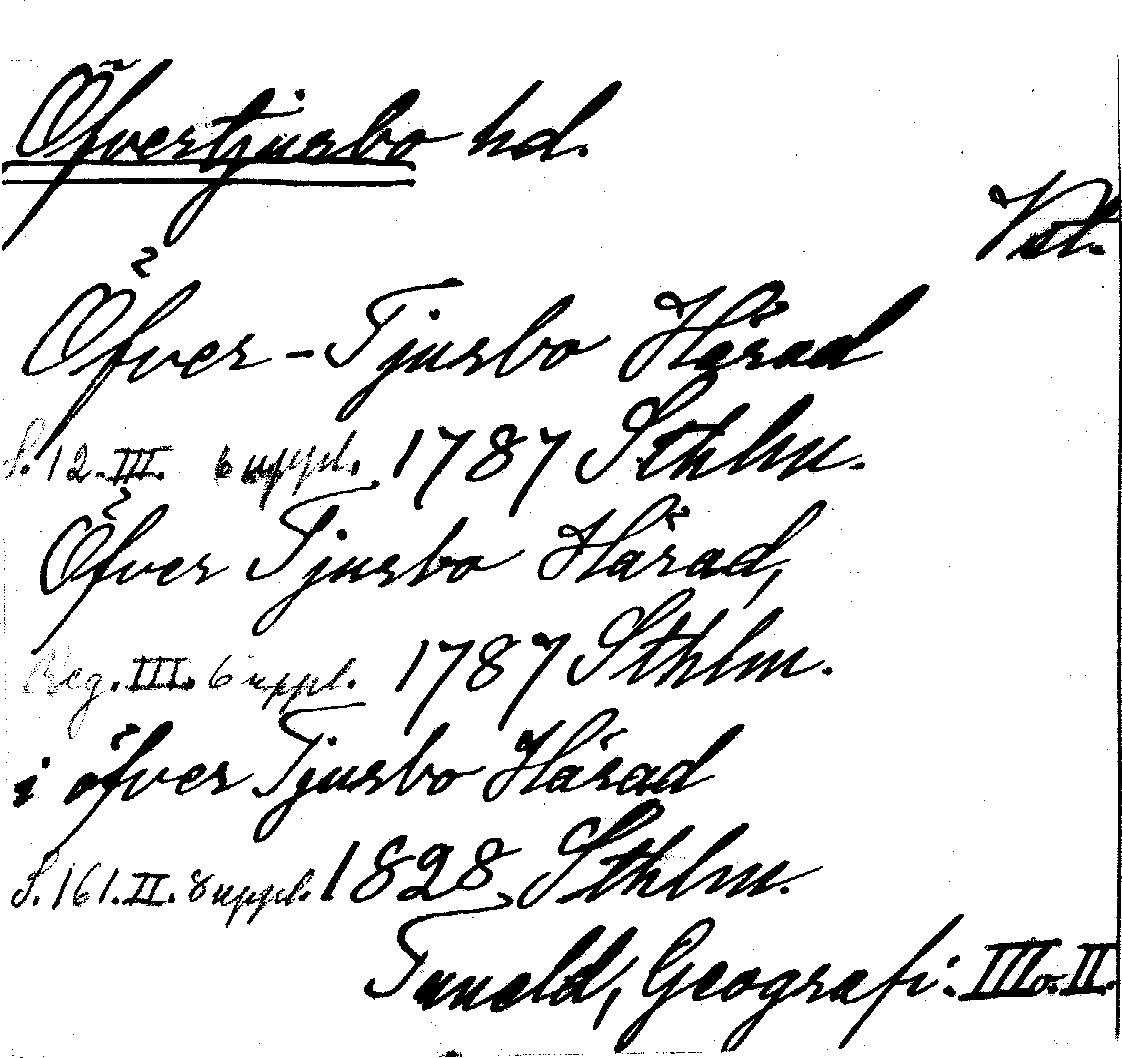 Öfvertjusbo hd.
Vst.
Öfver-Tjusbo Härad
S. 12. III. 6 uppl. 1787 Sthlm.
Öfver Tjusbo Härad,
Reg. III. 6 uppl. 1787 Sthlm.
i öfver Tjusbo Härad
S. 161. II. 8 uppl. 1828, Sthlm.
Tuneld, Geografi: III o. II.